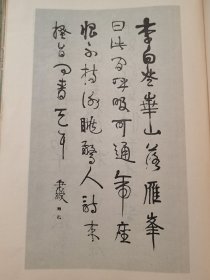 李白登華山落雁峯
曰此間呼吸可通帝座
恨不携謝朓驚人詩來
搔首問青天耳